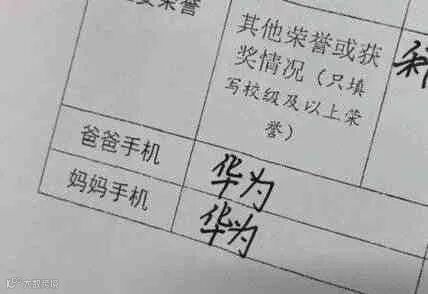 要荣誉
其他荣誉或获
奖情况（只填
写校级及以上荣
誉）
爸爸手机
华为
妈妈手机
华为